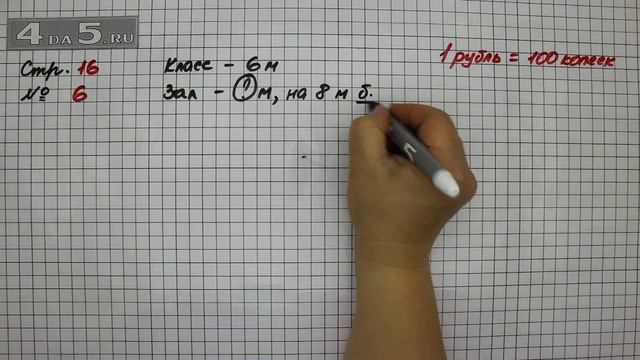 4 DA 5.RU
Стр. 16
№ 6
Класс - 6 м
Зал - ? м, на 8 м б.
1 рубль = 100 копеек